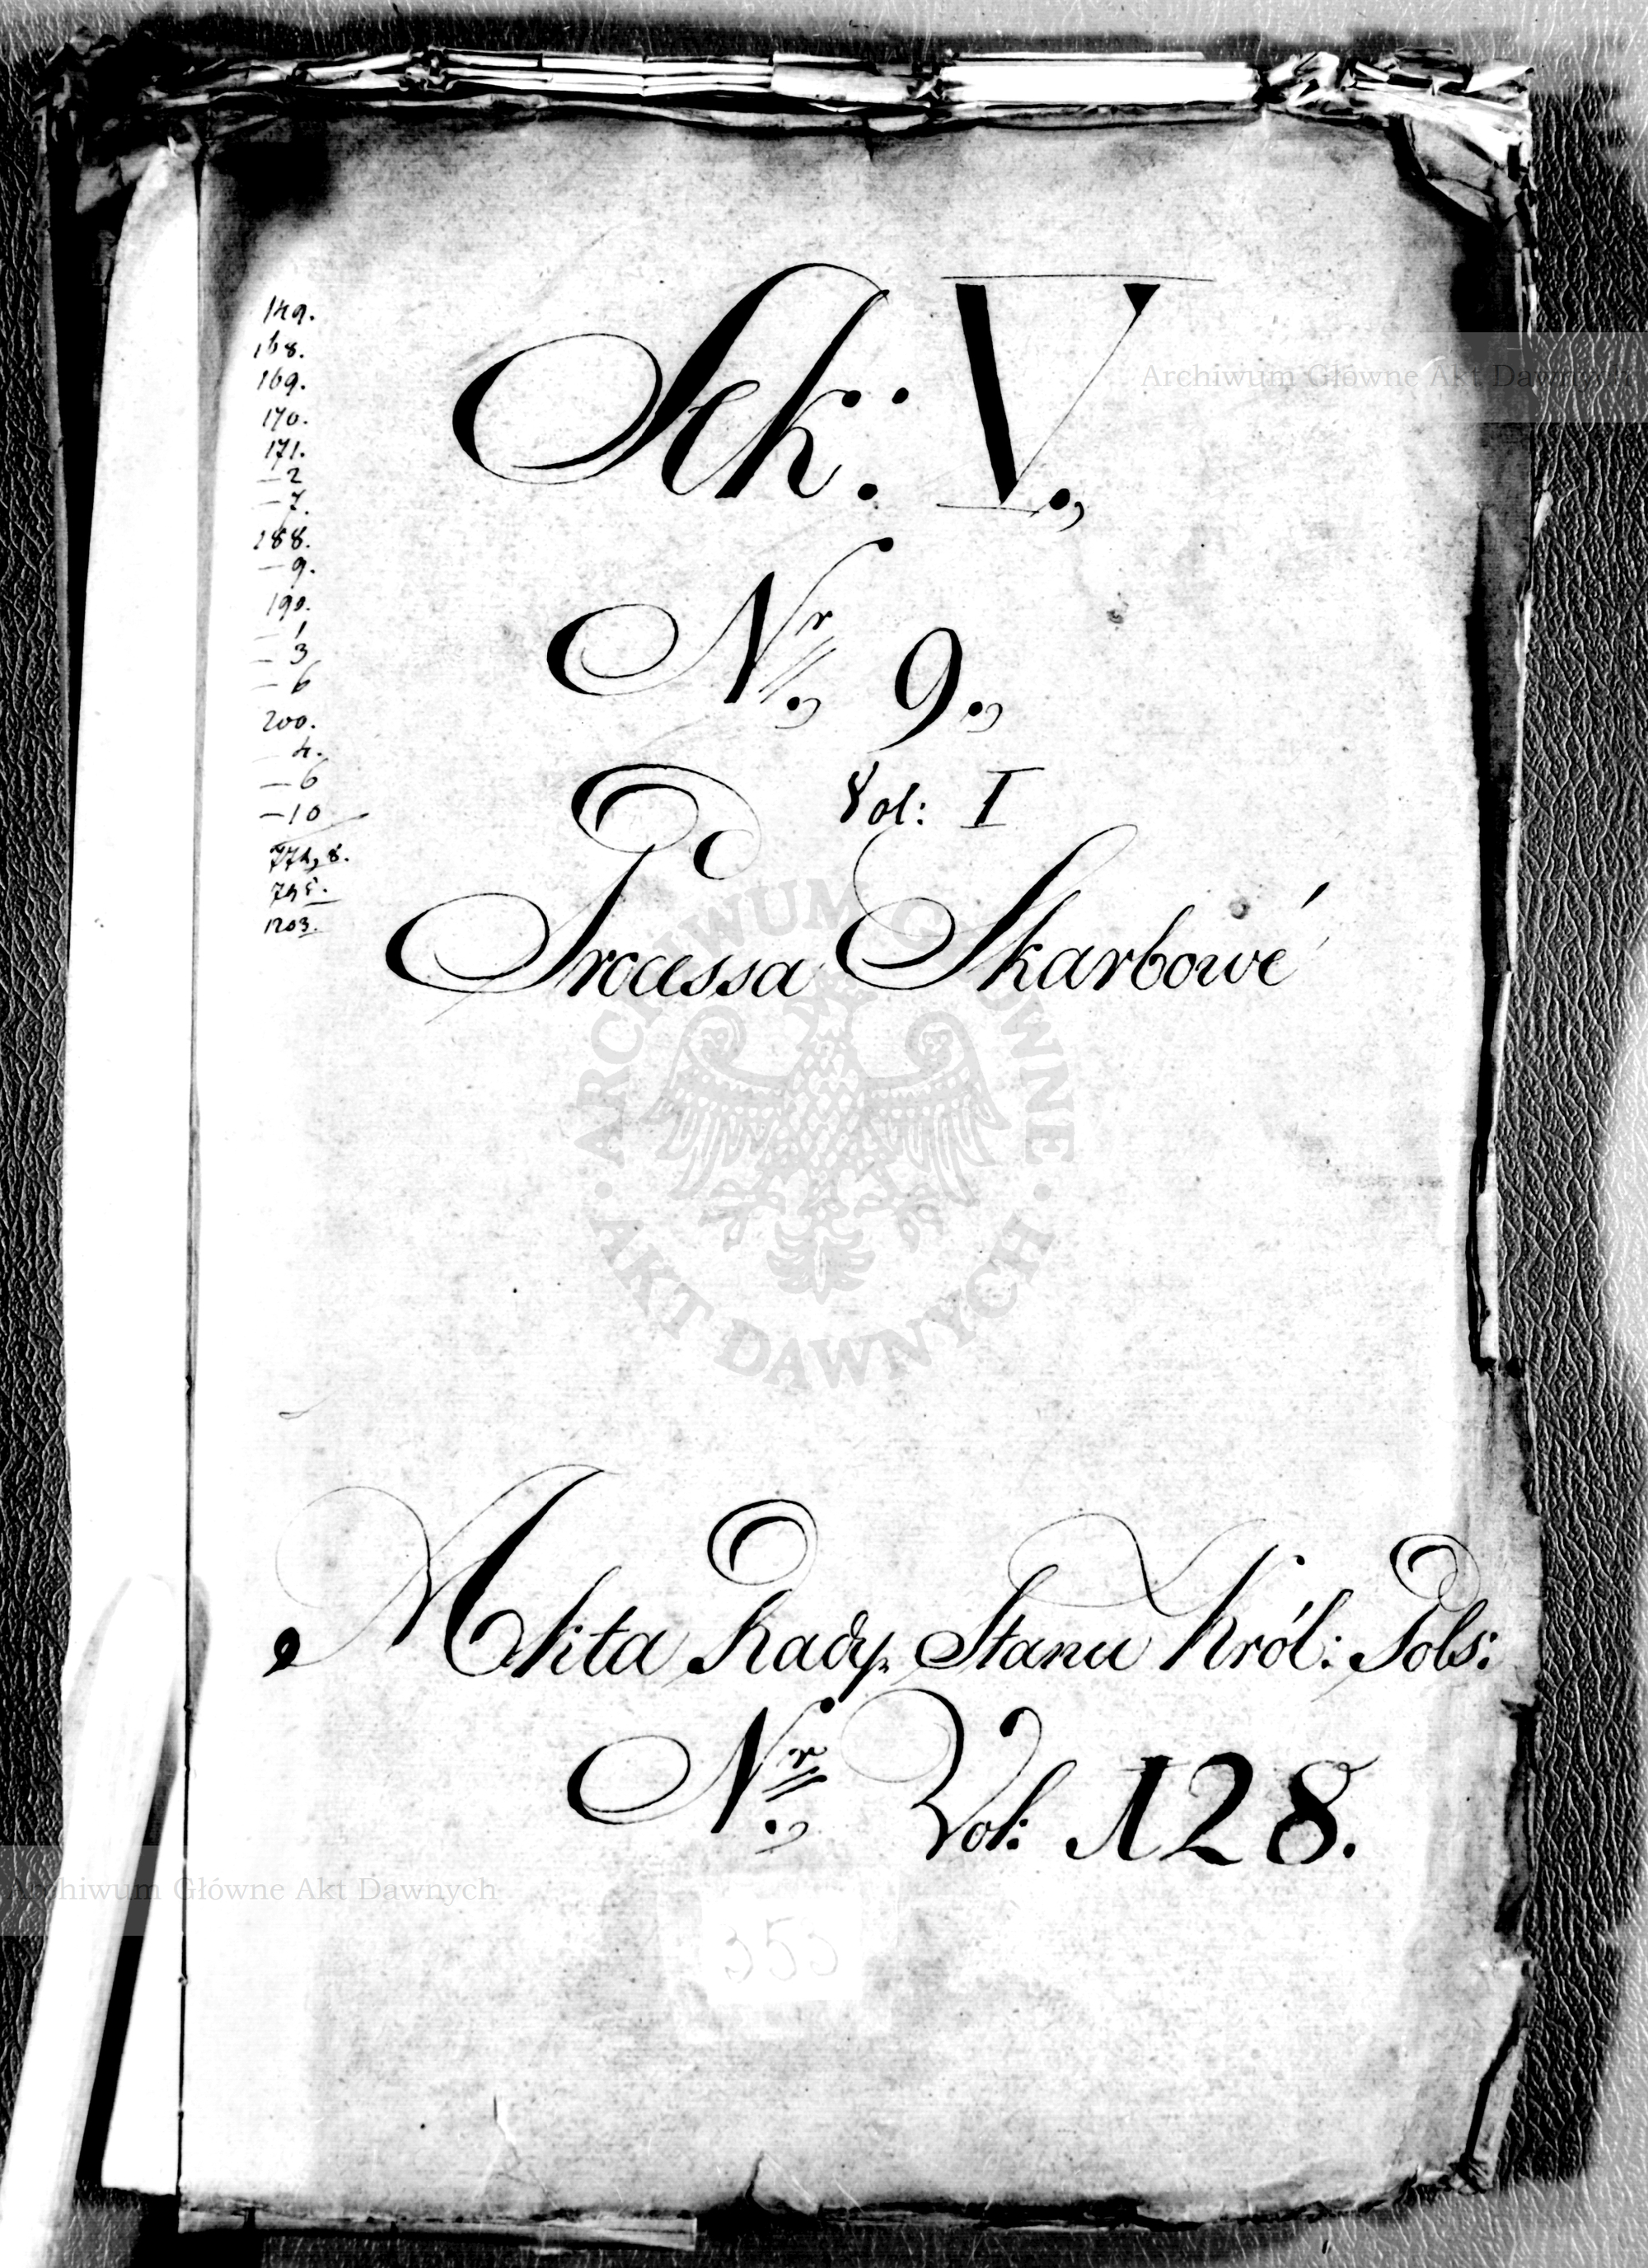 149.
168.
169.
170.
171.
— 2
— 7.
188.
— 9.
190.
— 1
— 3
— 6
200.
— 4.
— 6
— 10
1203.
Sek: V.,
Nr., 9.,
Vol: I
Processa Skarbowé
Akta Rady Stanu Król: Pols:
Nr., Vol: 128.
353
Archiwum Główne Akt Dawnych
ARCHIWUM GŁÓWNE · AKT DAWNYCH ·
Archiwum Główne Akt Dawnych